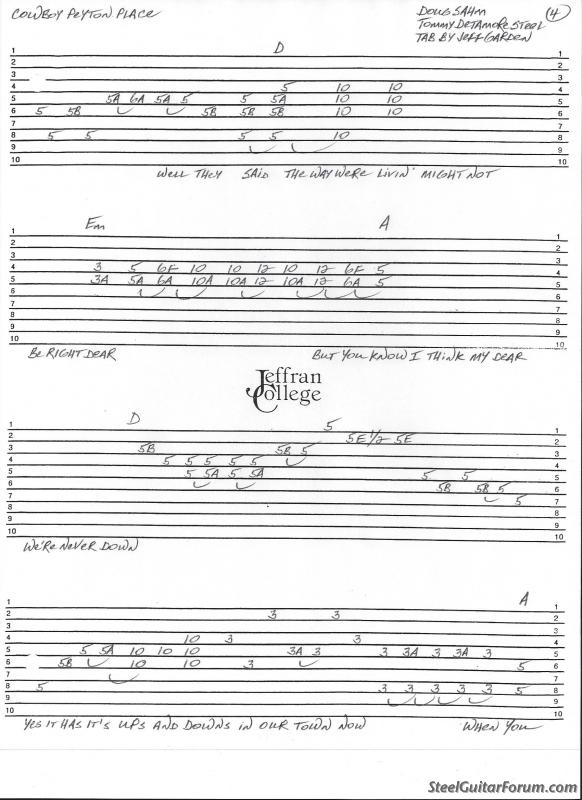 COWBOY PEYTON PLACE
DOUG SAHM
TOMMY DETAMORE STEEL
TAB BY JEFF GARDEN
4
D
1 1
2 2
3 3
4 5 10 10 4
5 5A 6A 5A 5 5 5A 10 10 5
6 5 5B 5B 5B 5B 10 10 6
7 7
8 5 5 5 5 10 8
9 9
10 10
WELL THEY SAID THE WAY WE'RE LIVIN' MIGHT NOT
Em A
1 1
2 2
3 3
4 3 5 6F 10 10 12 10 12 6F 5 4
5 3A 5A 6A 10A 10A 12 10A 12 6A 5 5
6 6
7 7
8 8
9 9
10 10
BE RIGHT DEAR BUT YOU KNOW I THINK MY DEAR
Jeffran
College
D
1 5 1
2 5E 1/2 5E 2
3 5B 5B 5 3
4 5 5 5 5 5 4
5 5 5A 5 5A 5 5 5
6 5B 5B 5 6
7 5 7
8 8
9 9
10 10
WE'RE NEVER DOWN
A
1 1
2 3 3 2
3 3
4 10 3 3 4
5 5 5A 10 10 10 3A 3 3 3A 3 3A 3 5
6 5B 10 10 3 5 6
7 7
8 5 3 3 3 3 3 5 8
9 9
10 10
YES IT HAS IT'S UPS AND DOWNS IN OUR TOWN NOW WHEN YOU
SteelGuitarForum.com